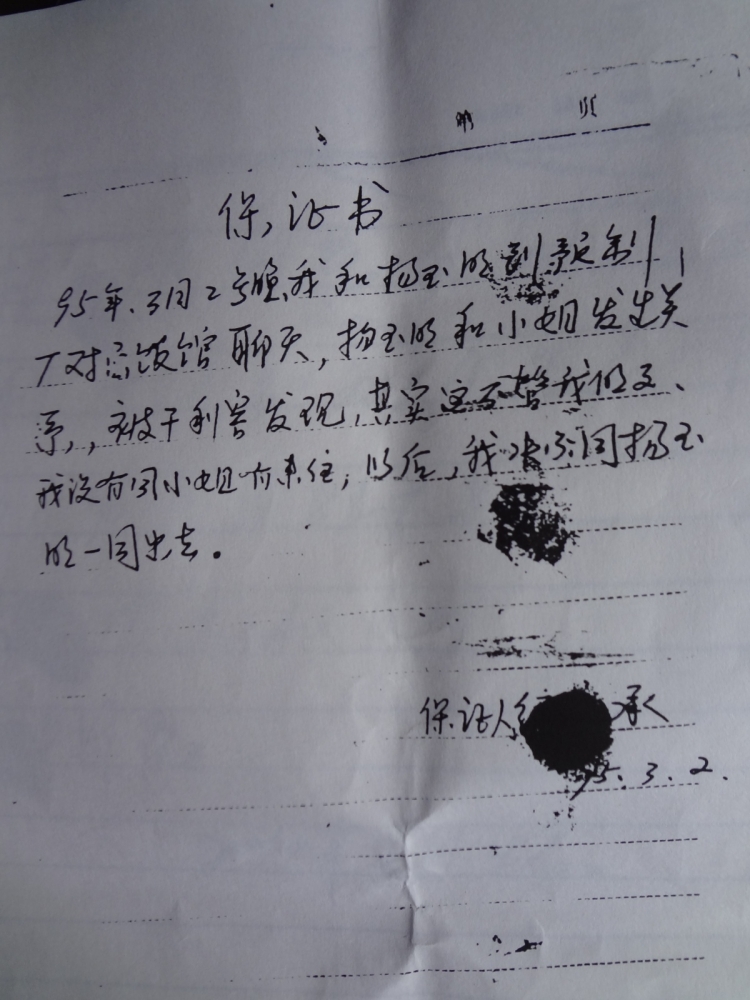 保证书
95年.3月2号晚我和杨玉明到预制
厂对过饭馆聊天,杨玉明和小姐发生关
系,被于利害发现,其实这不管我的事、
我没有同小姐有来往;以后,我决不同杨玉
明一同出去。
保证人 承
95.3.2.